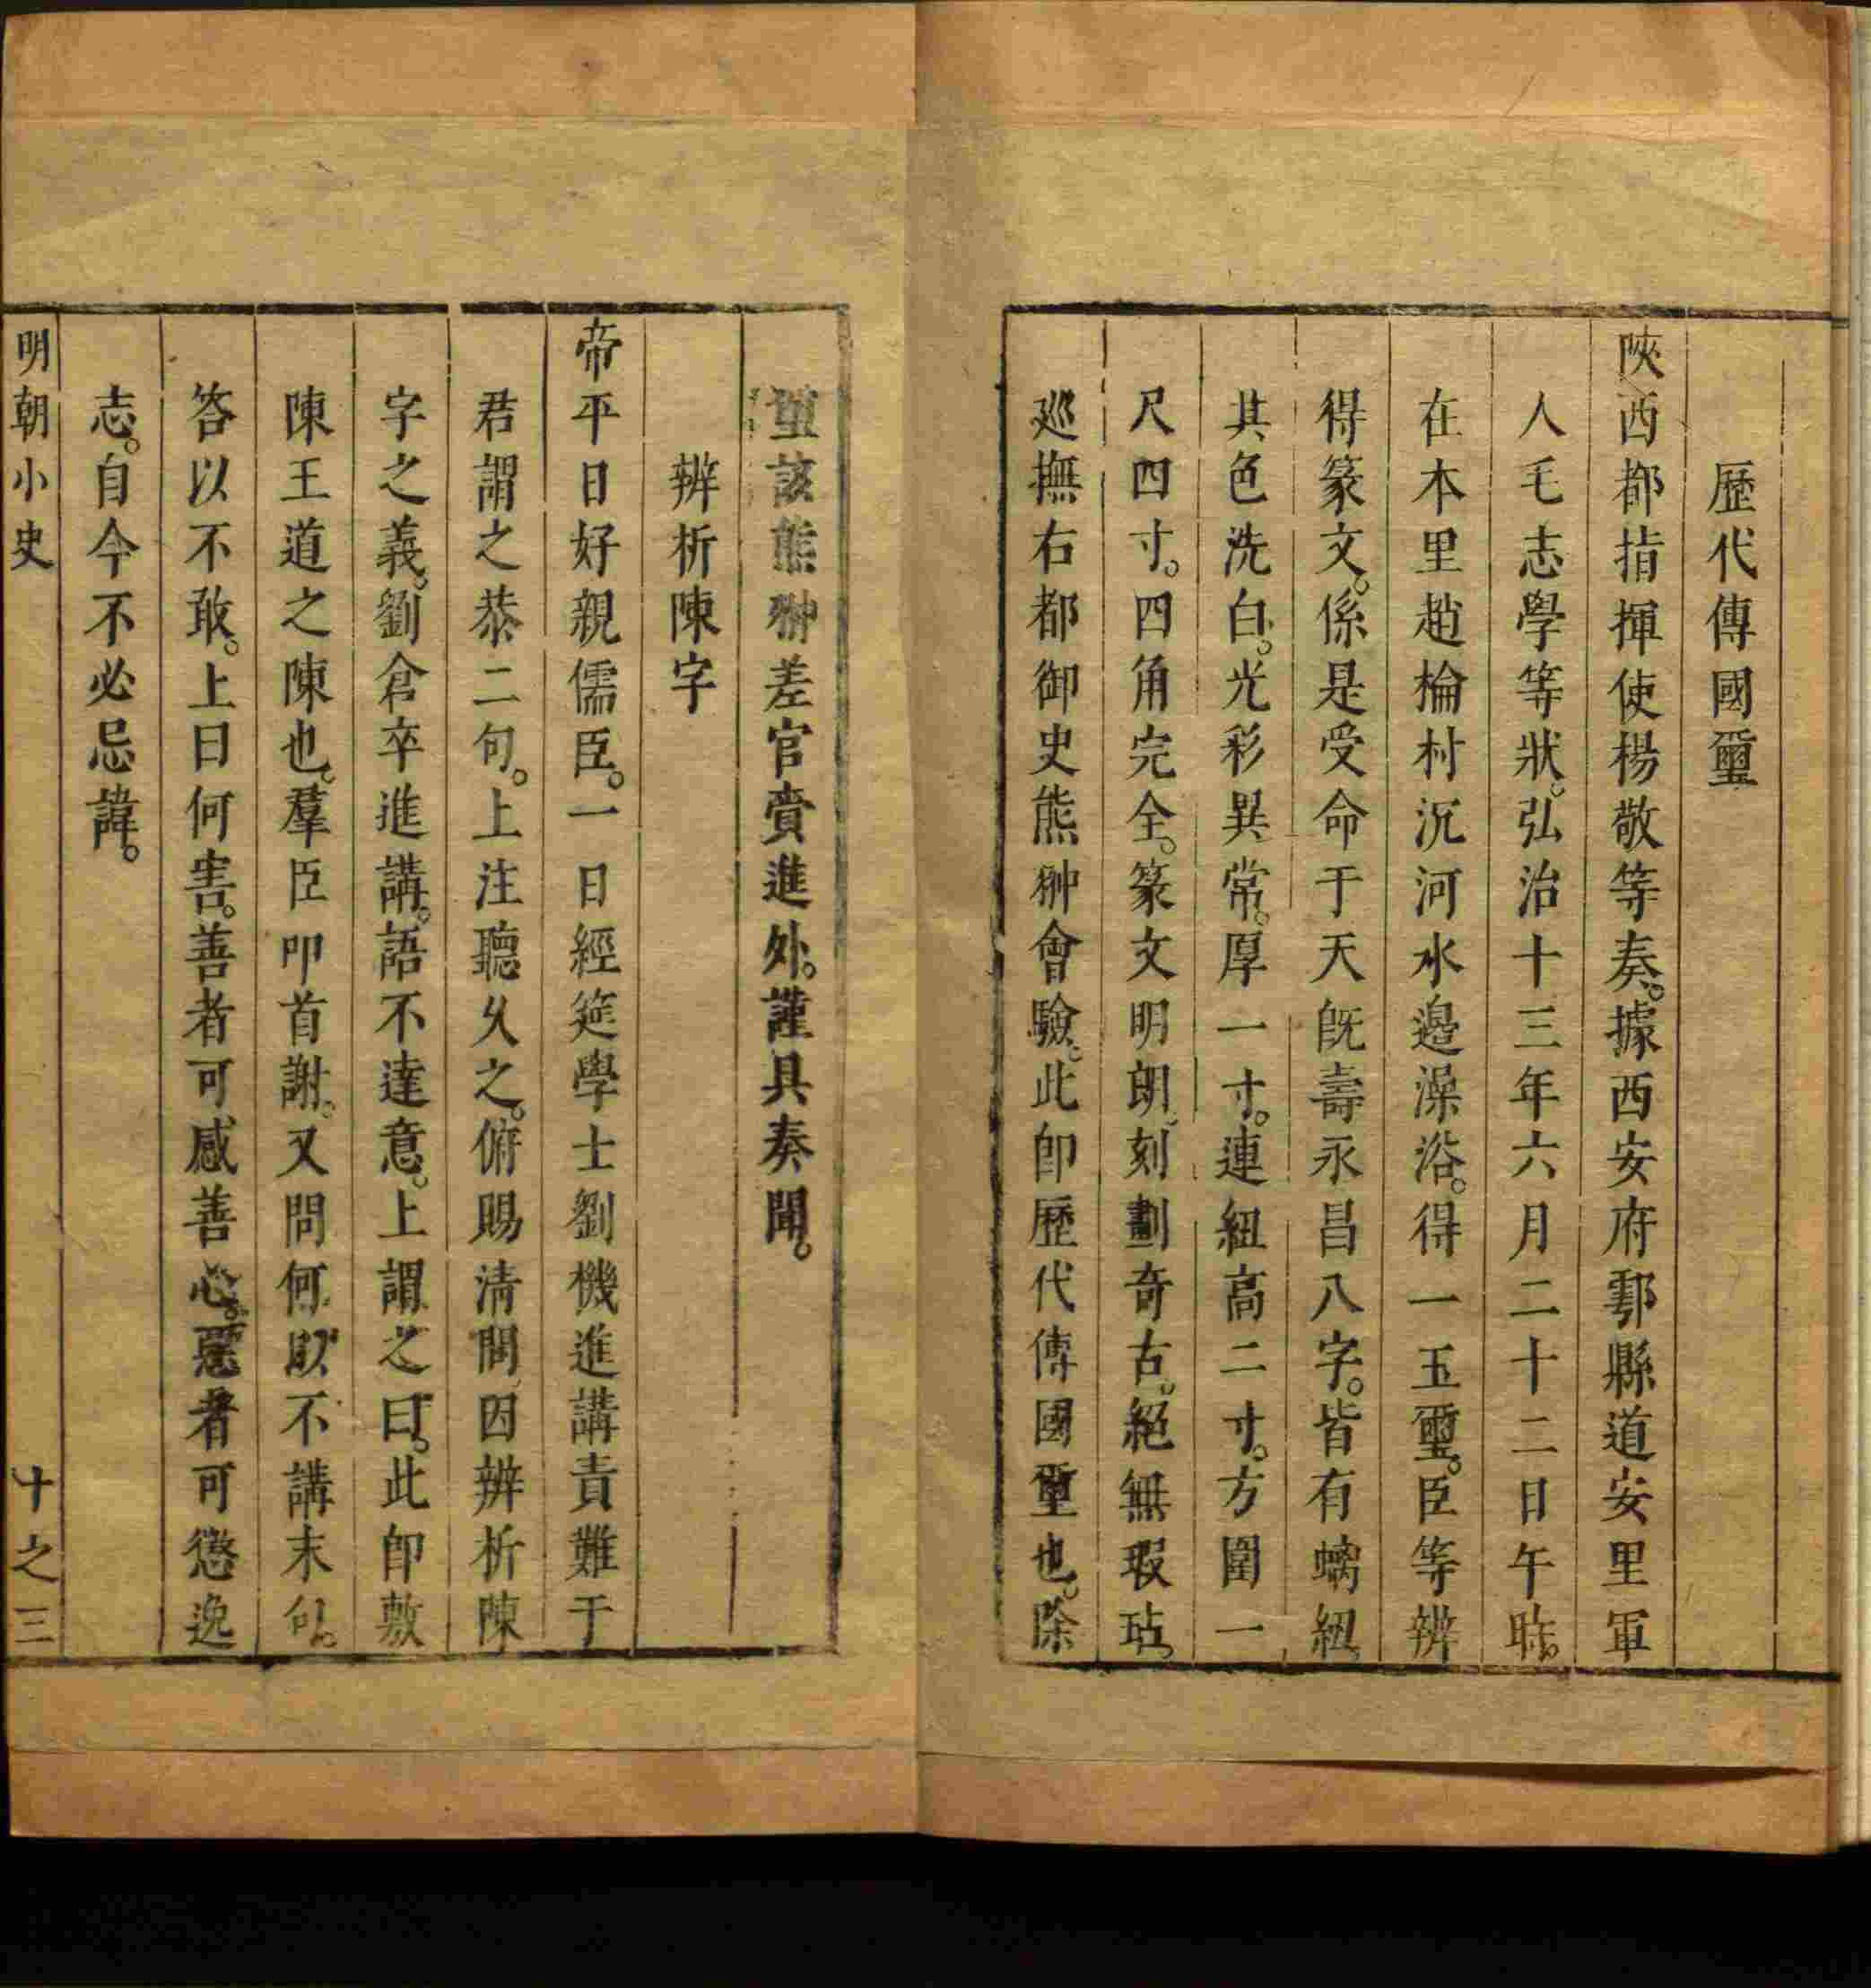 歷代傳國璽
陝西都指揮使楊敬等奏。據西安府鄠縣道安里軍
人毛志學等狀。弘治十三年六月二十二日午時。
在本里趙棆村沉河水邉澡浴。得一玉璽。臣等辨
得篆文。係是受命于天旣壽永昌八字。皆有螭紐
其色洗白。光彩異常。厚一寸。連紐高二寸。方圍一
尺四寸。四角完全。篆文明朗。刻劃奇古。絕無瑕玷。
廵撫右都御史熊翀會驗。此卽歷代傳國璽也。除
璽該熊翀差官賫進外。謹具奏聞。
辨析陳字
帝平日好親儒臣。一日經筵學士劉機進講責難于
君謂之恭二句。上注聽乆之。俯賜清問因辨析陳
字之義。劉倉卒進講。語不達意。上謂之曰。此卽敷
陳王道之陳也。羣臣叩首謝。又問何以不講末句。
答以不敢。上曰何害。善者可感善心。惡者可懲逸
志。自今不必忌諱。
明朝小史 十之三